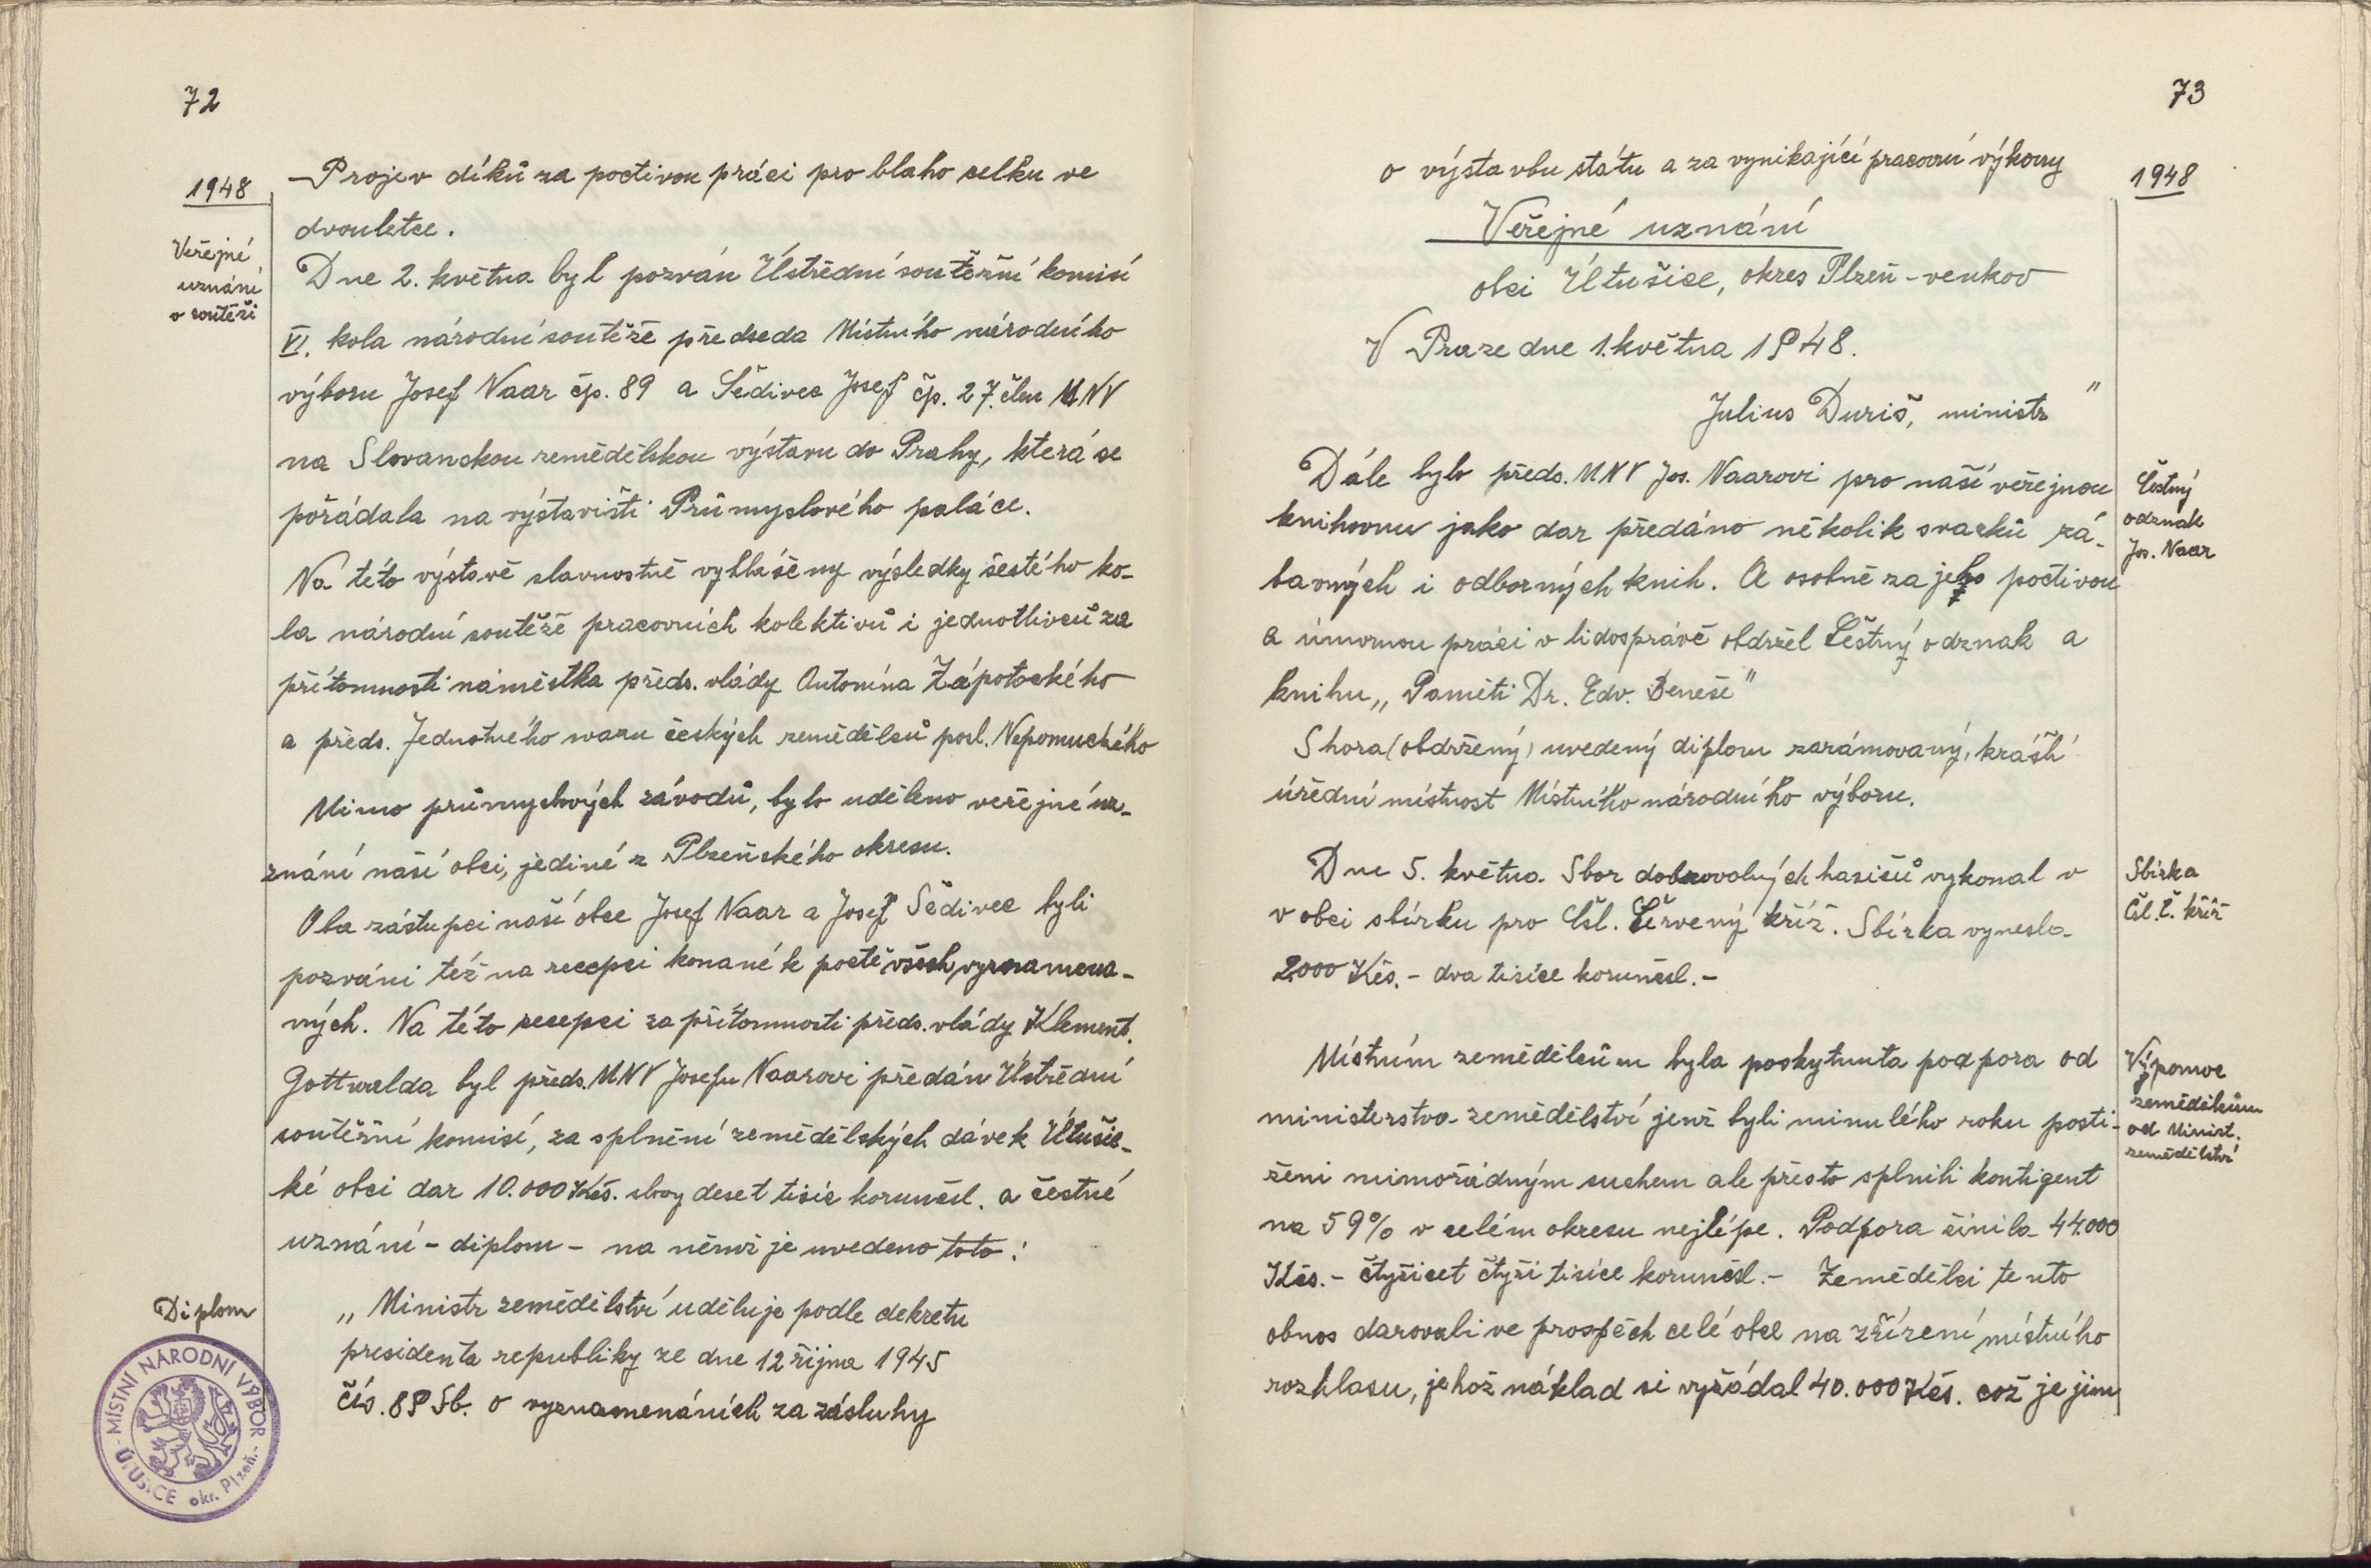 72
1948
Veřejné
uznání
v soutěži
Projev díků za poctivou práci pro blaho celku ve
dvouletce.
Dne 2. května byl pozván Ústřední soutěžní komisí
VI. kola národní soutěže předseda Místního národního
výboru Josef Naar čp. 89 a Šedivec Josef čp. 27. člen MNV
na Slovanskou zemědělskou výstavu do Prahy, která se
pořádala na výstavišti Průmyslového paláce.
Na této výstavě slavnostně vyhlášeny výsledky šestého ko-
la národní soutěže pracovních kolektivů i jednotlivců za
přítomnosti náměstka předs. vlády Antonína Zápotockého
a předs. Jednotného svazu českých zemědělců posl. Nepomuckého
Mimo průmyslových závodů, bylo uděleno veřejné uz-
znání naší obci, jediné z Plzeňského okresu.
Oba zástupci naší obce Josef Naar a Josef Šedivec byli
pozváni též na recepci konané k poctě všech vyznamena-
ných. Na této recepci za přítomnosti předs. vlády Klement.
Gottwalda byl předs. MNV Josefu Naarovi předán Ústřední
soutěžní komisí, za splnění zemědělských dávek Útušic-
ké obci dar 10.000 Kčs. slovy deset tisíc korunčsl. a čestné
uznání - diplom - na němž je uvedeno toto:
Diplom
„Ministr zemědělství uděluje podle dekretu
presidenta republiky ze dne 12 října 1945
čís. 89 Sb. o vyznamenáních za zásluhy
MÍSTNÍ NÁRODNÍ VÝBOR
ÚTUŠICE okr. Plzeň.
73
1948
o výstavbu státu a za vynikající pracovní výkony
Veřejné uznání
obci Útušice, okres Plzeň-venkov
V Praze dne 1. května 1948.
Julius Duriš, ministr "
Dále bylo předs. MNV Jos. Naarovi pro naší veřejnou
knihovnu jako dar předáno několik svazků zá-
bavných i odborných knih. A osobně za jeho poctivou
a úmornou práci v lidosprávě obdržel Čestný odznak a
knihu „Paměti Dr. Edv. Beneše"
Čestný
odznak
Jos. Naar
Shora (obdržený) uvedený diplom zarámovaný, krášlí
úřední místnost Místního národního výboru.
Dne 5. května Sbor dobrovolných hasičů vykonal v
v obci sbírku pro Čsl. Červený kříž. Sbírka vynesla
2000 Kčs. - dva tisíce korunčsl. -
Sbírka
Čsl. Č. kříž
Místním zemědělcům byla poskytnuta podpora od
ministerstva zemědělství jenž byli minulého roku posti-
ženi mimořádným suchem ale přesto splnili kontigent
na 59% v celém okresu nejlépe. Podpora činila 44.000
Kčs. - čtyřicet čtyři tisíce korunčsl. - Zemědělci tento
obnos darovali ve prospěch celé obce na zřízení místního
rozhlasu, jehož náklad si vyžádal 40.000 Kčs. což je jim
Výpomoc
zemědělcům
od Minist.
zemědělství